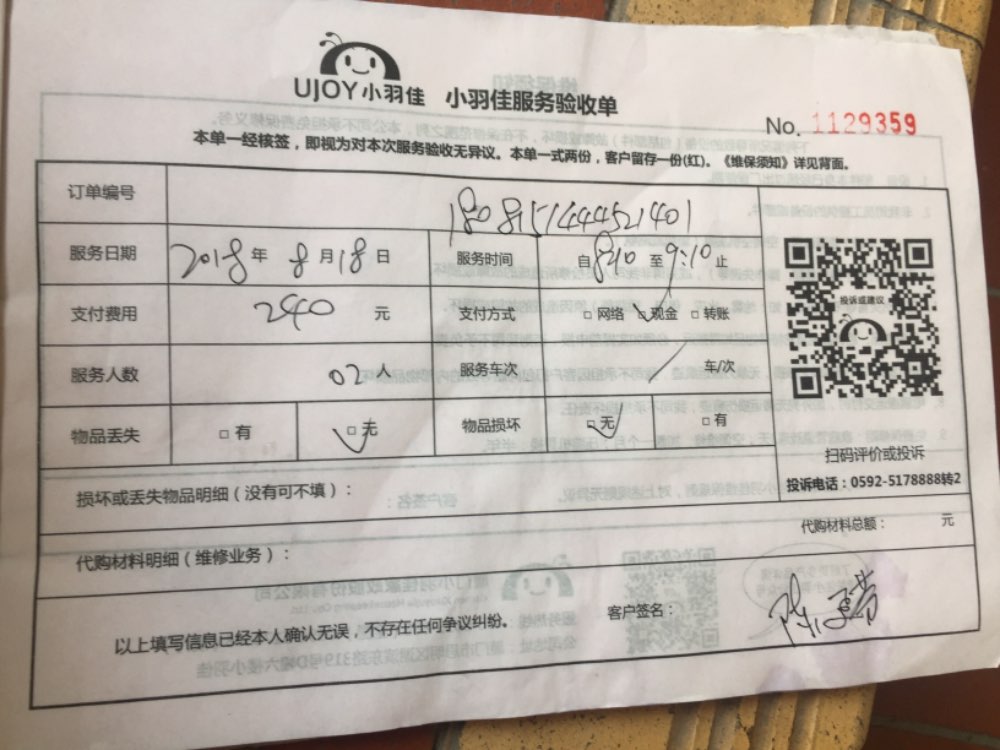 UJOY小羽佳 小羽佳服务验收单
No. 1129359
本单一经核签，即视为对本次服务验收无异议。本单一式两份，客户留存一份(红)。《维保须知》详见背面。
订单编号 1808151444521401
服务日期 2018年 8月18日 服务时间 自8:10至9:10止
支付费用 240 元 支付方式 □网络 □现金 □转账
服务人数 02人 服务车次 车/次
物品丢失 □有 □无 物品损坏 □无 □有
投诉或建议
扫码评价或投诉
投诉电话：0592-5178888转2
损坏或丢失物品明细（没有可不填）：
代购材料总额： 元
代购材料明细（维修业务）：
客户签名：
以上填写信息已经本人确认无误，不存在任何争议纠纷。